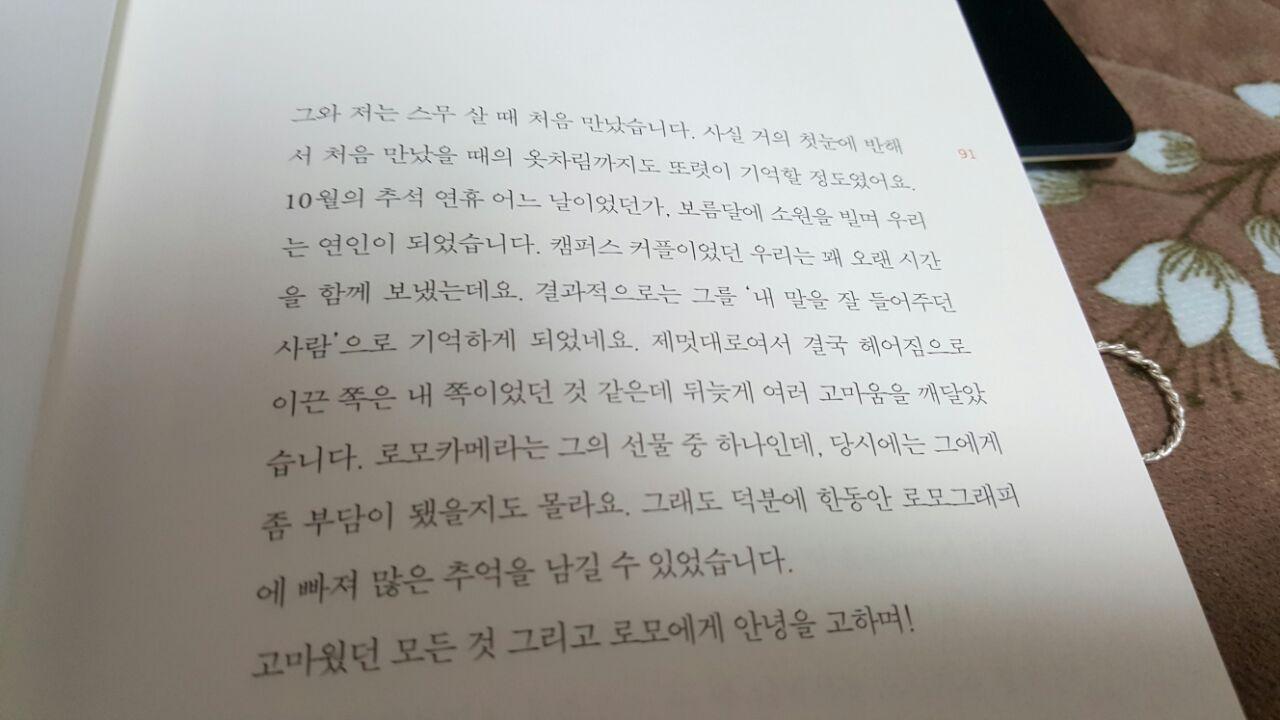 그와 저는 스무 살 때 처음 만났습니다. 사실 거의 첫눈에 반해
서 처음 만났을 때의 옷차림까지도 또렷이 기억할 정도였어요.
91
10월의 추석 연휴 어느 날이었던가, 보름달에 소원을 빌며 우리
는 연인이 되었습니다. 캠퍼스 커플이었던 우리는 꽤 오랜 시간
을 함께 보냈는데요. 결과적으로는 그를 ‘내 말을 잘 들어주던
사람’으로 기억하게 되었네요. 제멋대로여서 결국 헤어짐으로
이끈 쪽은 내 쪽이었던 것 같은데 뒤늦게 여러 고마움을 깨달았
습니다. 로모카메라는 그의 선물 중 하나인데, 당시에는 그에게
좀 부담이 됐을지도 몰라요. 그래도 덕분에 한동안 로모그래피
에 빠져 많은 추억을 남길 수 있었습니다.
고마웠던 모든 것 그리고 로모에게 안녕을 고하며!